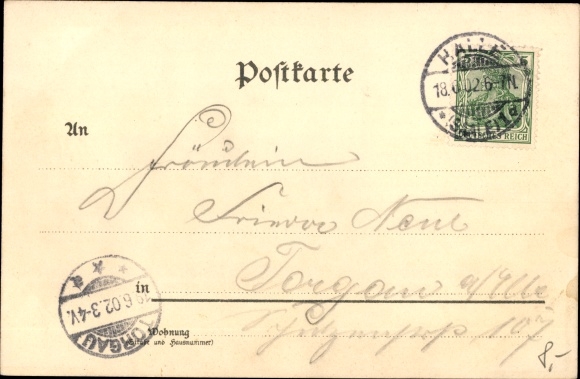 Postkarte
HALLE
18.6.02.6-7N.
(SAALE) 1 d
5
REICH
An
Fräulein
Frieda
Torgau a/Elbe
in
107
Wohnung
(Straße und Hausnummer)
19.6.02.3-4V.
TORGAU
8,-